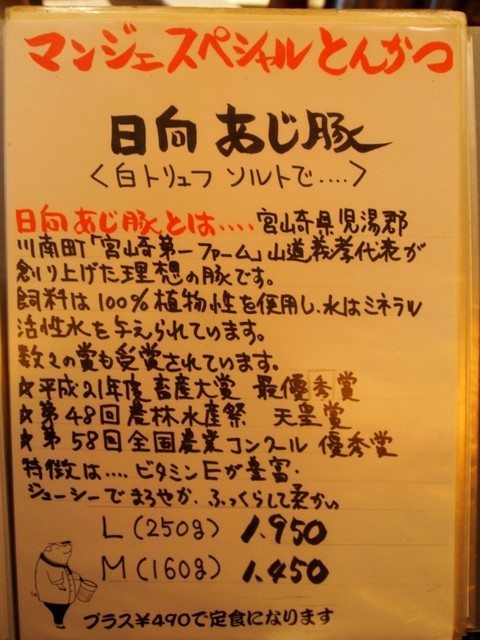 マンジェスペシャルとんかつ
日向 あじ豚
〈白トリュフ ソルトで....〉
日向 あじ豚とは....宮崎県児湯郡
川南町「宮崎第一ファーム」山道義孝代表が
創り上げた理想の豚です。
飼料は100%植物性を使用し、水はミネラル
活性水を与えられています。
数々の賞も受賞されています。
☆平成21年度畜産大賞 最優秀賞
★第48回農林水産祭 天皇賞
★第58回全国農業コンクール 優秀賞
特徴は....ビタミンEが豊富.
ジューシーでまろやか.ふっくらして柔かい
L(250g) 1.950
M(160g) 1.450
プラス¥490で定食になります